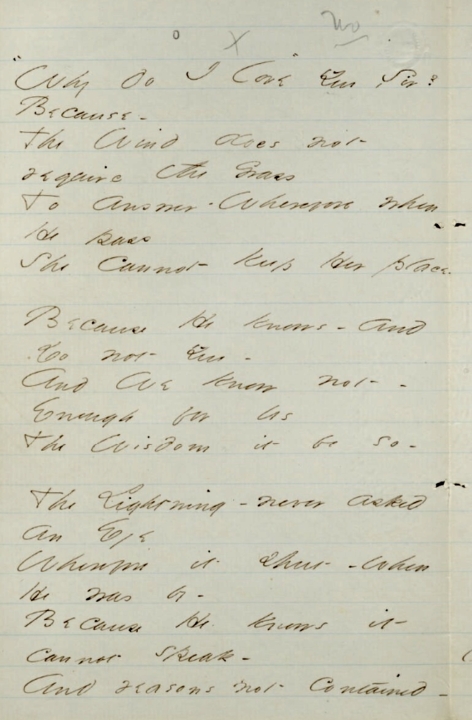 o x No
"Why do I love" You, Sir?
Because -
The Wind does not
require the Grass
To answer - Wherefore when
He pass
She cannot keep Her place.
Because He knows - and
Do not You -
And We know not -
Enough for Us
The Wisdom it be so -
The Lightning - never asked
an Eye
Wherefore it shut - when
He was by -
Because He knows it
cannot speak -
And reasons not contained -